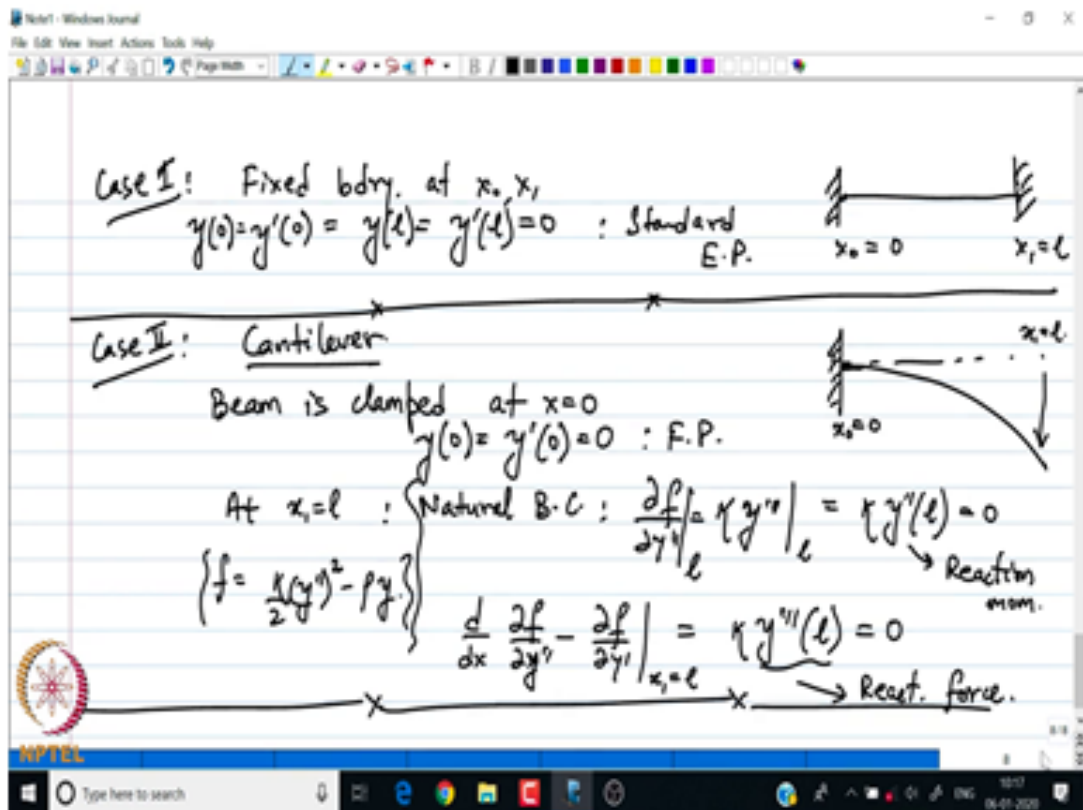 Note1 - Windows Journal
File Edit View Insert Actions Tools Help
Page Width
B I
Case I: Fixed bdry. at x₀, x₁
y(0) = y'(0) = y(l) = y'(l) = 0 : Standard
E.P.
x₀ = 0 x₁ = l
Case II: Cantilever
x₁ = l
Beam is clamped at x = 0
x₀ = 0
y(0) = y'(0) = 0 : E.P.
At x₁ = l : { Natural B.C : ∂f/∂y'' |_l = κ y'' |_l = κ y''(l) = 0
→ Reaction
mom.
{ f = κ/2 (y'')² - ρy }
d/dx ∂f/∂y'' - ∂f/∂y' |_{x₁ = l} = κ y'''(l) = 0
→ React. force.
NPTEL
8/8
8
Type here to search
ENG
10:17